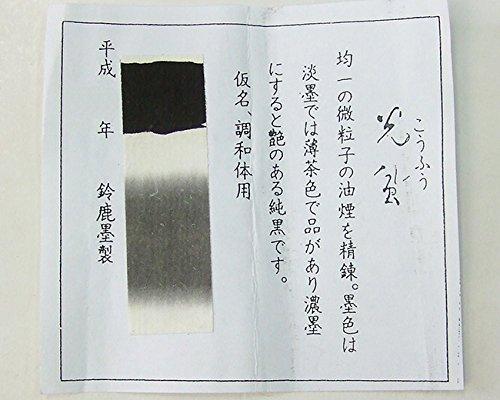 こうふう
光風
均一の微粒子の油煙を精錬。墨色は
淡墨では薄茶色で品があり濃墨
にすると艶のある純黒です。
仮名、調和体用
平成 年 鈴鹿墨製